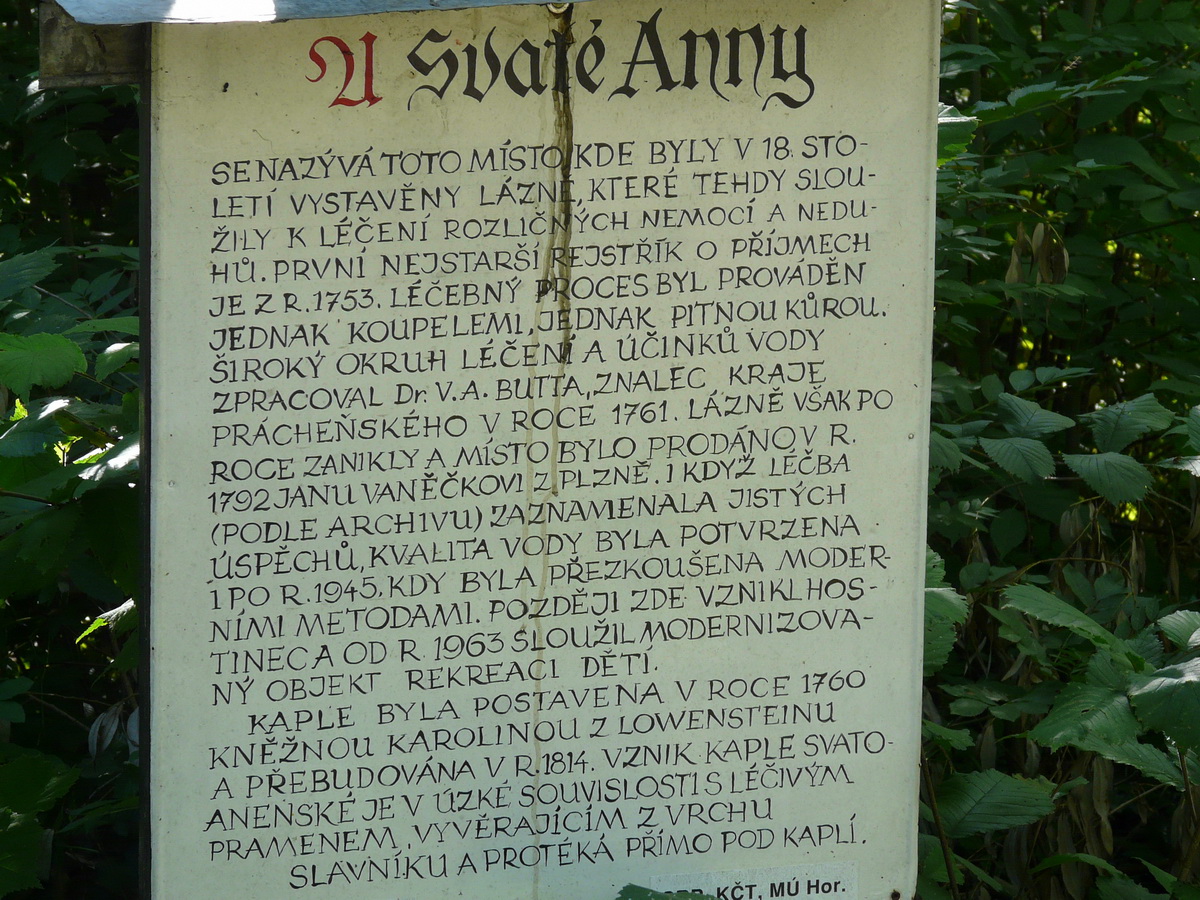 U Svaté Anny
SE NAZÝVÁ TOTO MÍSTO, KDE BYLY V 18. STO-
LETÍ VYSTAVĚNY LÁZNĚ, KTERÉ TEHDY SLOU-
ŽILY K LÉČENÍ ROZLIČNÝCH NEMOCÍ A NEDU-
HŮ. PRVNÍ NEJSTARŠÍ REJSTŘÍK O PŘÍJMECH
JE Z R. 1753. LÉČEBNÝ PROCES BYL PROVÁDĚN
JEDNAK KOUPELEMI, JEDNAK PITNOU KŮROU.
ŠIROKÝ OKRUH LÉČENÍ A ÚČINKŮ VODY
ZPRACOVAL Dr. V. A. BUTTA, ZNALEC KRAJE
PRÁCHEŇSKÉHO V ROCE 1761. LÁZNĚ VŠAK PO
ROCE ZANIKLY A MÍSTO BYLO PRODÁNO V R.
1792 JANU VANĚČKOVI Z PLZNĚ. I KDYŽ LÉČBA
(PODLE ARCHIVU) ZAZNAMENALA JISTÝCH
ÚSPĚCHŮ, KVALITA VODY BYLA POTVRZENA
I PO R. 1945, KDY BYLA PŘEZKOUŠENA MODER-
NÍMI METODAMI. POZDĚJI ZDE VZNIKL HOS-
TINEC A OD R. 1963 SLOUŽIL MODERNIZOVA-
NÝ OBJEKT REKREACI DĚTÍ.
KAPLE BYLA POSTAVENA V ROCE 1760
KNĚŽNOU KAROLINOU Z LOWENSTEINU
A PŘEBUDOVÁNA V R. 1814. VZNIK KAPLE SVATO-
ANENSKÉ JE V ÚZKÉ SOUVISLOSTI S LÉČIVÝM
PRAMENEM, VYVĚRAJÍCÍM Z VRCHU
SLAVNÍKU A PROTÉKÁ PŘÍMO POD KAPLÍ.
KČT, MÚ Hor.